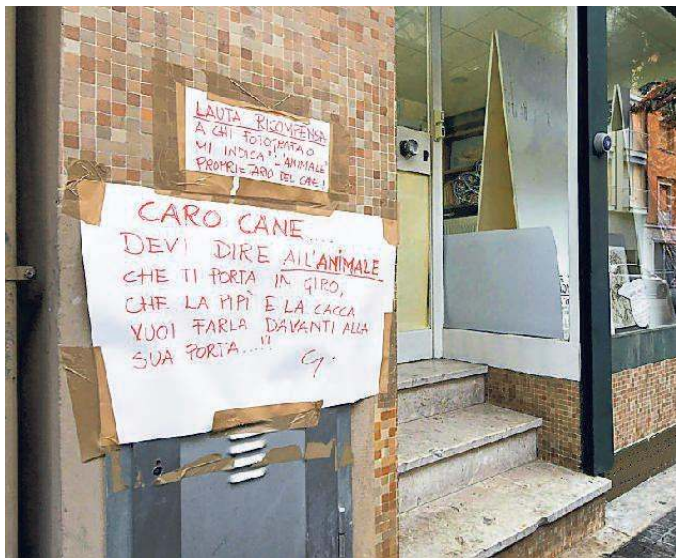 LAUTA RICOMPENSA
A CHI FOTOGRAFA O
MI INDICA L'"ANIMALE"
PROPRIETARIO DEL CANE!
CARO CANE....
DEVI DIRE ALL'ANIMALE
CHE TI PORTA IN GIRO,
CHE LA PIPÌ E LA CACCA
VUOI FARLA DAVANTI ALLA
SUA PORTA....!!